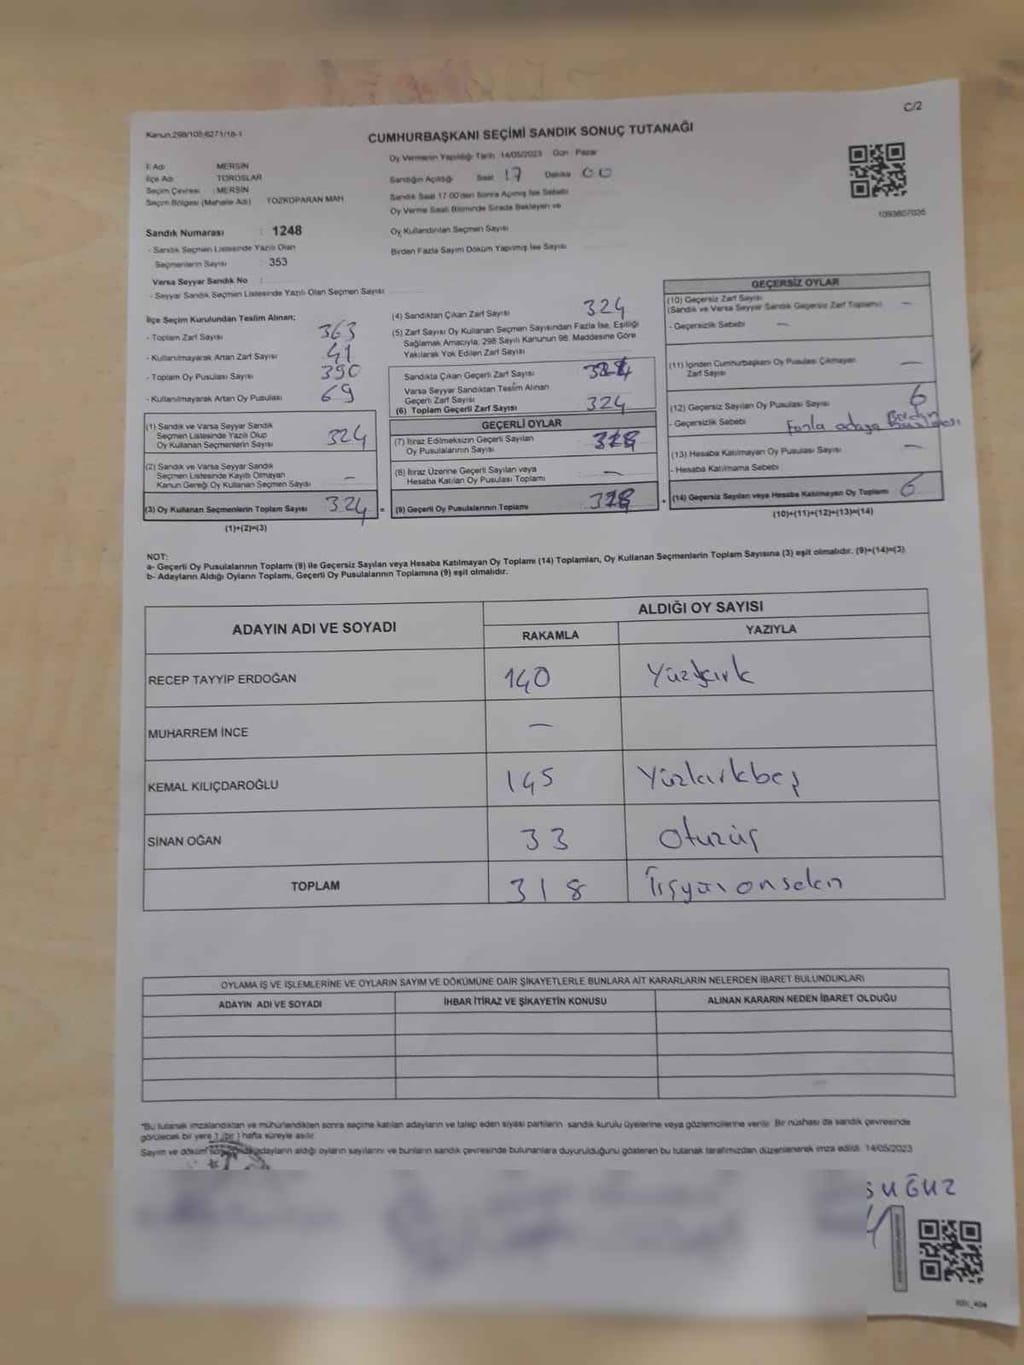 C/2
Kanun:298/105;6271/18-1
CUMHURBAŞKANI SEÇİMİ SANDIK SONUÇ TUTANAĞI
İl Adı : MERSİN
İlçe Adı : TOROSLAR
Seçim Çevresi : MERSİN
Seçim Bölgesi (Mahalle Adı) : TOZKOPARAN MAH.
Oy Vermenin Yapıldığı Tarih : 14/05/2023 Gün : Pazar
Sandığın Açıldığı Saat 17 Dakika 00
Sandık Saat 17:00'den Sonra Açılmış İse Sebebi
Oy Verme Saati Bitiminde Sırada Bekleyen ve
Oy Kullandırılan Seçmen Sayısı
Birden Fazla Sayım Döküm Yapılmış İse Sayısı
1093807035
Sandık Numarası : 1248
- Sandık Seçmen Listesinde Yazılı Olan
Seçmenlerin Sayısı : 353
Varsa Seyyar Sandık No :
- Seyyar Sandık Seçmen Listesinde Yazılı Olan Seçmen Sayısı
İlçe Seçim Kurulundan Teslim Alınan;
- Toplam Zarf Sayısı 363
- Kullanılmayarak Artan Zarf Sayısı 41
- Toplam Oy Pusulası Sayısı 390
- Kullanılmayarak Artan Oy Pusulası 69
(1) Sandık ve Varsa Seyyar Sandık
Seçmen Listesinde Yazılı Olup
Oy Kullanan Seçmenlerin Sayısı 324
(2) Sandık ve Varsa Seyyar Sandık
Seçmen Listesinde Kayıtlı Olmayan
Kanun Gereği Oy Kullanan Seçmen Sayısı —
(3) Oy Kullanan Seçmenlerin Toplam Sayısı 324
(1)+(2)=(3)
(4) Sandıktan Çıkan Zarf Sayısı 324
(5) Zarf Sayısı Oy Kullanan Seçmen Sayısından Fazla İse, Eşitliği
Sağlamak Amacıyla, 298 Sayılı Kanunun 98. Maddesine Göre
Yakılarak Yok Edilen Zarf Sayısı
Sandıkta Çıkan Geçerli Zarf Sayısı 324
Varsa Seyyar Sandıktan Teslim Alınan
Geçerli Zarf Sayısı
(6) Toplam Geçerli Zarf Sayısı 324
GEÇERLİ OYLAR
(7) İtiraz Edilmeksizin Geçerli Sayılan
Oy Pusulalarının Sayısı 318
(8) İtiraz Üzerine Geçerli Sayılan veya
Hesaba Katılan Oy Pusulası Toplamı —
(9) Geçerli Oy Pusulalarının Toplamı 318
GEÇERSİZ OYLAR
(10) Geçersiz Zarf Sayısı
(Sandık ve Varsa Seyyar Sandık Geçersiz Zarf Toplamı) —
- Geçersizlik Sebebi —
(11) İçinden Cumhurbaşkanı Oy Pusulası Çıkmayan
Zarf Sayısı —
(12) Geçersiz Sayılan Oy Pusulası Sayısı 6
- Geçersizlik Sebebi Birden Fazla adaya
(13) Hesaba Katılmayan Oy Pusulası Sayısı —
- Hesaba Katılmama Sebebi
(14) Geçersiz Sayılan veya Hesaba Katılmayan Oy Toplamı 6
(10)+(11)+(12)+(13)=(14)
NOT:
a- Geçerli Oy Pusulalarının Toplamı (9) ile Geçersiz Sayılan veya Hesaba Katılmayan Oy Toplamı (14) Toplamları, Oy Kullanan Seçmenlerin Toplam Sayısına (3) eşit olmalıdır. (9)+(14)=(3)
b- Adayların Aldığı Oyların Toplamı, Geçerli Oy Pusulalarının Toplamına (9) eşit olmalıdır.
ADAYIN ADI VE SOYADI
ALDIĞI OY SAYISI
RAKAMLA YAZIYLA
RECEP TAYYİP ERDOĞAN 140 Yüzkırk
MUHARREM İNCE —
KEMAL KILIÇDAROĞLU 145 Yüzkırkbeş
SİNAN OĞAN 33 Otuzüç
TOPLAM 318 Üçyüzonsekiz
OYLAMA İŞ VE İŞLEMLERİNE VE OYLARIN SAYIM VE DÖKÜMÜNE DAİR ŞİKAYETLERLE BUNLARA AİT KARARLARIN NELERDEN İBARET BULUNDUKLARI
ADAYIN ADI VE SOYADI İHBAR İTİRAZ VE ŞİKAYETİN KONUSU ALINAN KARARIN NEDEN İBARET OLDUĞU
*Bu tutanak imzalandıktan ve mühürlendikten sonra seçime katılan adayların ve talep eden siyasi partilerin sandık kurulu üyelerine veya gözlemcilerine verilir. Bir nüshası da sandık çevresinde
görülecek bir yere 1 (bir) hafta süreyle asılır.
Sayım ve döküm adayların aldığı oyların sayılarını ve bunların sandık çevresinde bulunanlara duyurulduğunu gösteren bu tutanak tarafımızdan düzenlenerek imza edildi. 14/05/2023